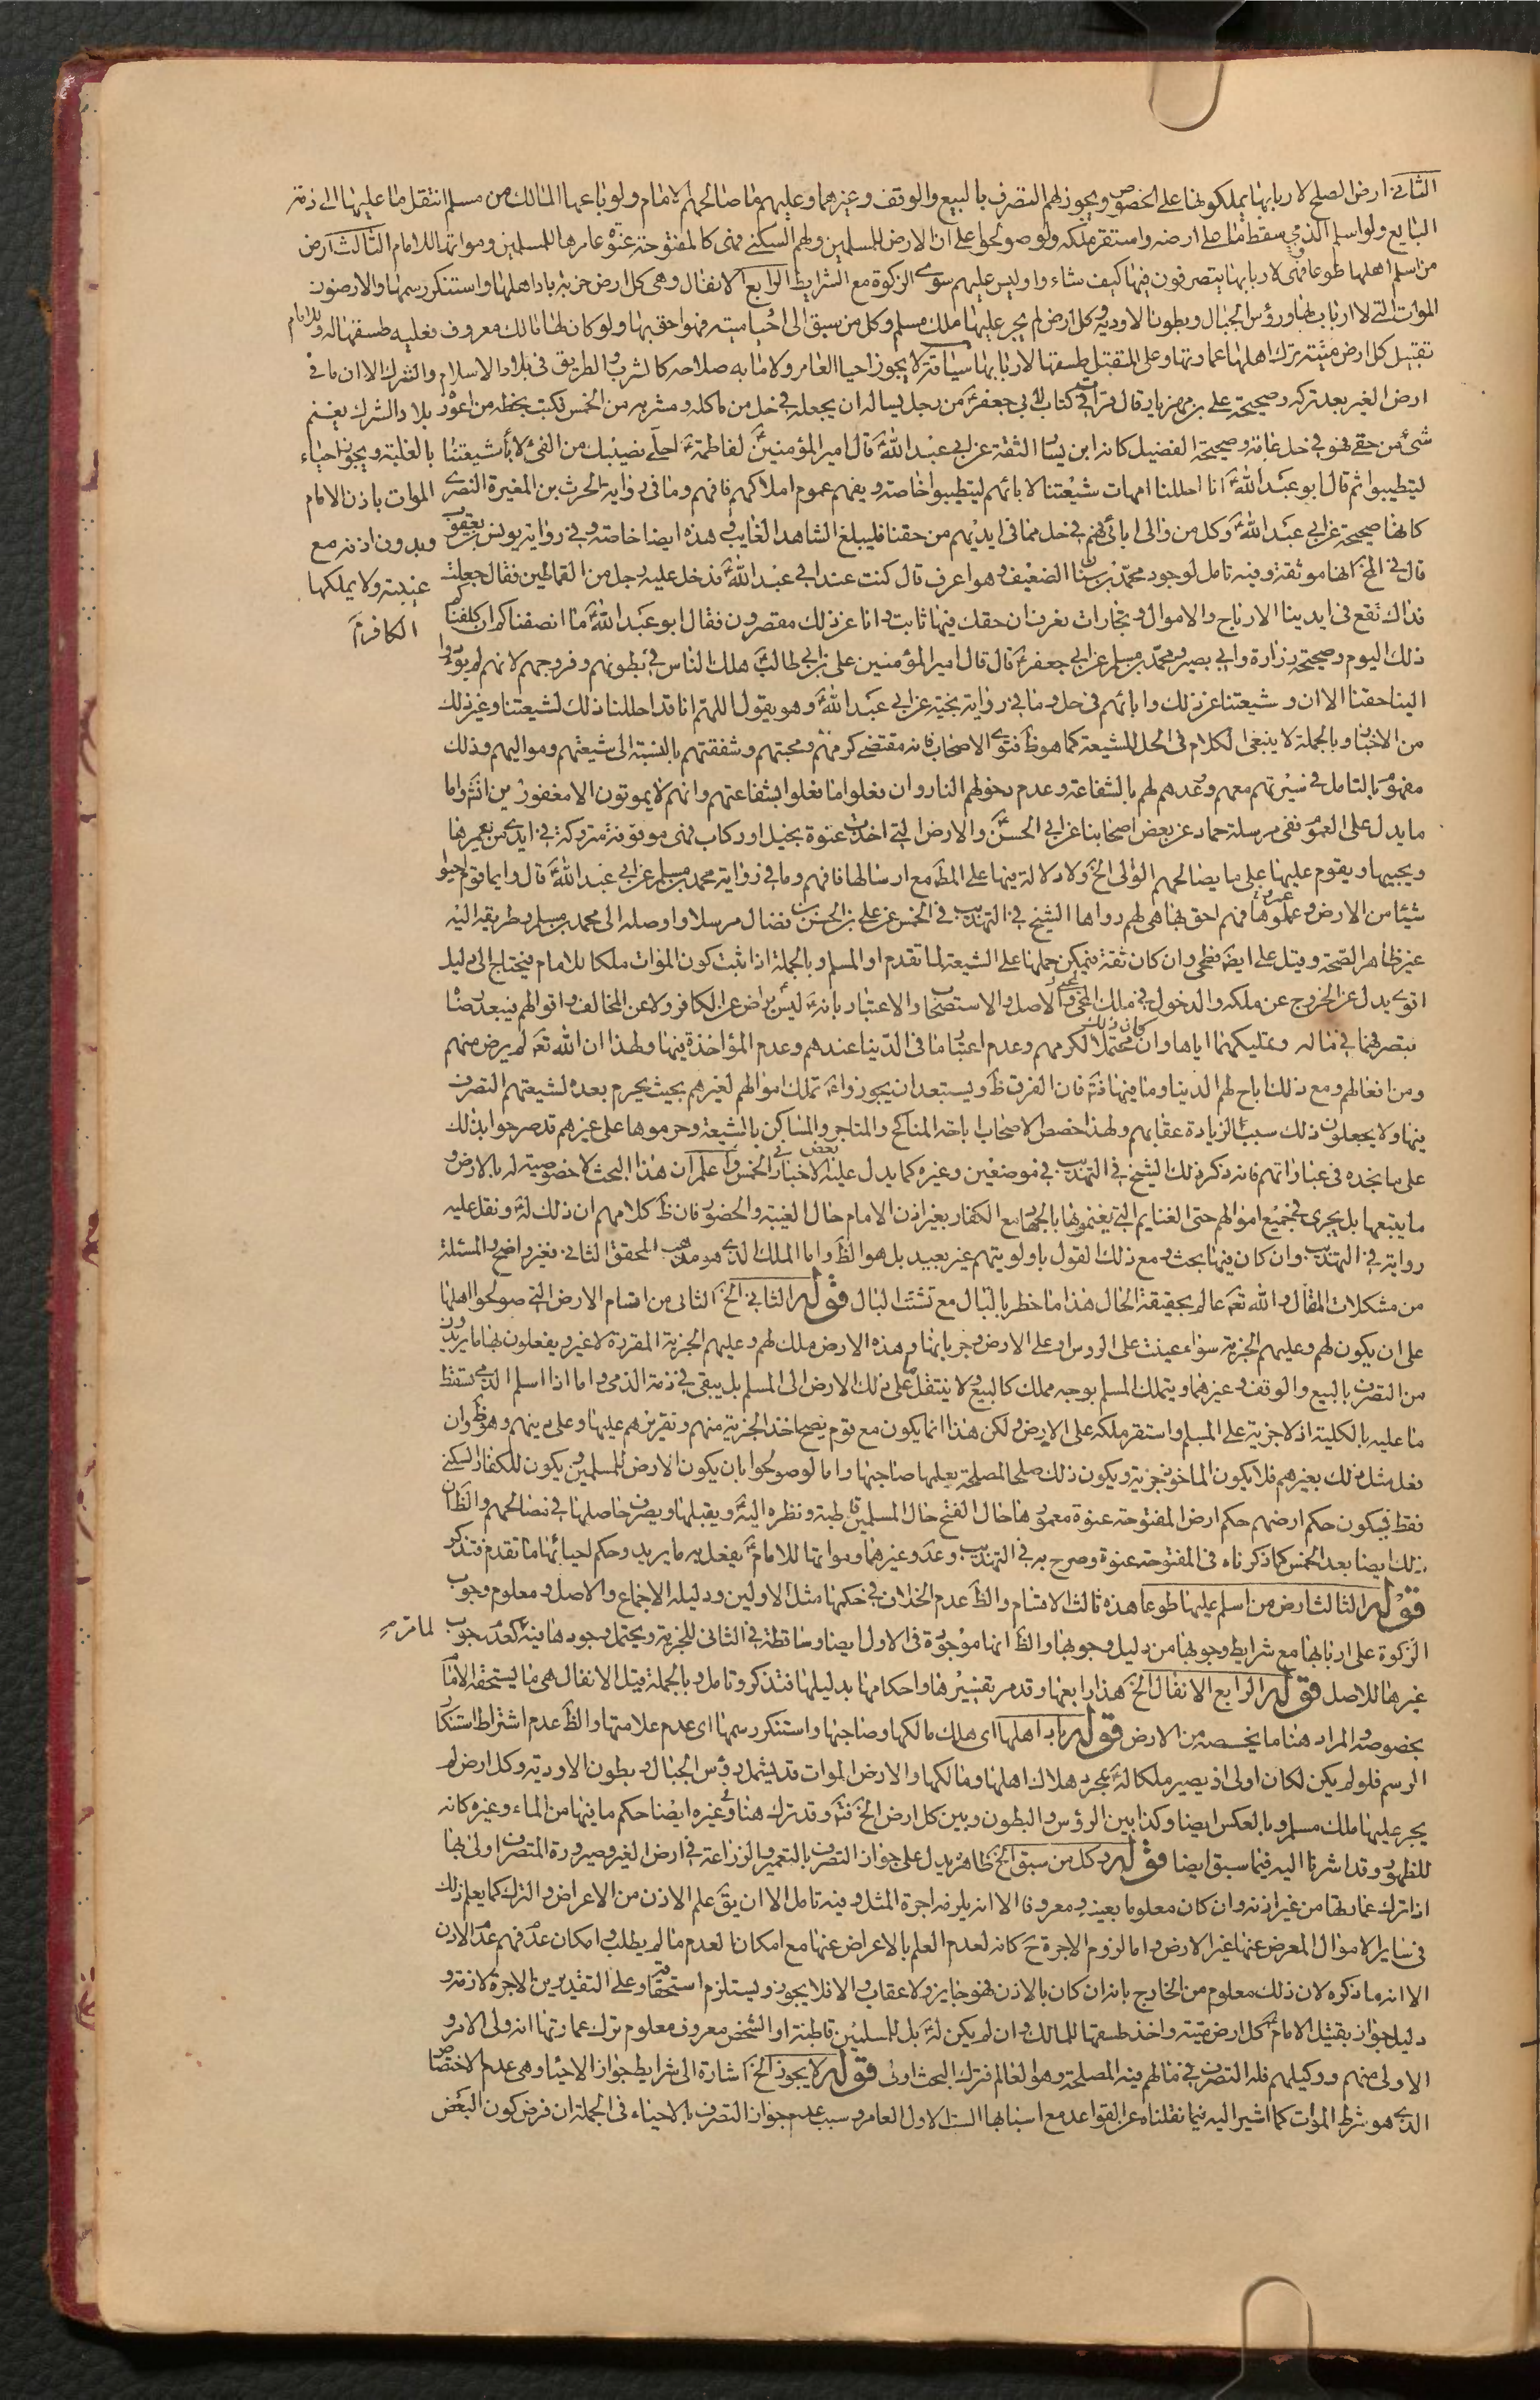 الثانى ارض الصلح لاربابها يملكونها على الخصوص ويجوز لهم التصرف بالبيع والوقف وغيرهما وعليهم ما صالحهم الامام ولو باعها المالك من مسلم انتقل ما عليها الى ذمة
البايع ولو اسلم الذمي سقط ما على ارضه واستقر ملكه ولو صولحوا على ان الارض للمسلمين ولهم السكنى فهى كالمفتوحة عنوة عامرها للمسلمين ومواتها للامام الثالث ارض
من اسلم اهلها طوعا فهى لاربابها يتصرفون فيها كيف شاءوا وليس عليهم سوى الزكوة مع الشرايط الرابع الانفال وهى كل ارض خربة باد اهلها واستنكر رسمها والارضون
الموات التى لا ارباب لها ورؤس الجبال وبطون الاودية وكل ارض لم يجر عليها ملك مسلم وكل من سبق الى احياء ميتة فهو احق بها ولو كان لها مالك معروف فعليه طسقها له وللامام
تقبيل كل ارض ميتة ترك اهلها عمارتها وعلى المتقبل طسقها لاربابها سياقة لا يجوز احياء العامر ولا ما به صلاحه كالشرب والطريق فى بلاد الاسلام والشرك الا ان ما فى
ارض الغير بعد تركه وصحيحة على بن مهزيار قال قرات فى كتاب لابى جعفر ع من رجل يساله ان يجعله فى حل من ماكله ومشربه من الخمس فكتب بخطه من اعوزه بلاد الشرك يغنم
شئ من حقى فهو فى حل غايته وصحيحة الفضيل كانه ابن يسار الثقة عن ابى عبد الله ع قال قال امير المؤمنين ع لفاطمة ع احلى نصيبك من الفئ لاباء شيعتنا بالغلبة ويجوز احياء
ليتطيبوا ثم قال ابو عبد الله ع انا احللنا امهات شيعتنا لابائهم ليتطيبوا خاصة ويفهم عموم املاكهم فافهم وما فى رواية الحرث بن المغيرة النصرى الموات باذن الامام
كانها صحيحة عن ابى عبد الله ع وكل من والى ابائى فهم فى حل مما فى ايديهم من حقنا فليبلغ الشاهد الغايب وهذه ايضا خاصة وفى رواية يونس بن يعقوب وبدون اذنه مع
قال فى الخ انها موثقة وفيه تامل لوجود محمد بن سنان الضعيف وهو اعرف قال كنت عند ابى عبد الله ع فدخل عليه رجل من القماطين فقال جعلت غيبته ولا يملكها
فداك تقع فى ايدينا الارباح والاموال وتجارات نعرف ان حقك فيها ثابت وانا عن ذلك مقصرون فقال ابو عبد الله ع ما انصفناكم ان كلفناكم الكافر
ذلك اليوم وصحيحة زرارة وابى بصير ومحمد بن مسلم عن ابى جعفر ع قال قال امير المؤمنين على بن ابى طالب ع هلك الناس فى بطونهم وفروجهم لانهم لم يؤدوا
الينا حقنا الا ان وشيعتنا عن ذلك وابائهم فى حل وما فى رواية نجية عن ابى عبد الله ع وهو يقول اللهم انا قد احللنا ذلك لشيعتنا وغير ذلك
من الاخبار وبالجملة لا ينبغى الكلام فى الحل للشيعة كما هو ظ فتوى الاصحاب فانه مقتضى كرمهم ومحبتهم وشفقتهم بالنسبة الى شيعتهم ومواليهم وذلك
مفهوم بالتامل فى سيرتهم معهم وعدهم لهم بالشفاعة وعدم دخولهم النار وان فعلوا ما فعلوا بشفاعتهم وانهم لا يموتون الا مغفورين واما
ما يدل على العموم ففى مرسلة حماد عن بعض اصحابنا عن ابى الحسن ع والارض التى اخذت عنوة بخيل او ركاب فهى موقوفة متروكة فى ايدى من يعمرها
ويحييها ويقوم عليها على ما يصالحهم الوالى الخ ولا دلالة فيها على المط مع ارسالها فافهم وما فى رواية محمد بن مسلم عن ابى عبد الله ع قال وايما قوم احيوا
شيئا من الارض وعملوها فهم احق بها وهى لهم رواها الشيخ فى التهذيب فى الخمس عن على بن الحسن بن فضال مرسلا واوصله الى محمد بن مسلم وطريقه اليه
غير ظاهر الصحة وقيل على ايضا فطحى وان كان ثقة فيمكن حملها على الشيعة لما تقدم او المسلم وبالجملة اذا ثبت كون الموات ملكا للامام فيحتاج الى دليل
اقوى يدل عن الخروج عن ملكه والدخول فى ملك المحيى والاصل والاستصحاب والاعتبار بانه ع ليس براض عن الكافر ولا عن المخالف واقوالهم فيبعد رضاه
بتصرفهما فى ماله وتمليكهما اياها وان كان ذلك محتملا لكرمهم وعدم اعتبار ما فى الدنيا عندهم وعدم المؤاخذة فيها ولهذا ان الله تعه لم يرض منهم
ومن افعالهم ومع ذلك اباح لهم الدنيا وما فيها فان الفرق ظ ويستبعد ان يجوزوا تملك اموالهم لغيرهم بحيث يحرم بعده لشيعتهم التصرف
فيها ولا يجعلون ذلك سببا لزيادة عقابهم ولهذا خصص الاصحاب اباحة المناكح والمتاجر والمساكن بالشيعة وحرموها على غيرهم قد صرحوا بذلك
على ما نجده فى عباراتهم فانه ذكر ذلك الشيخ فى التهذيب فى موضعين وغيره كما يدل عليه بعض الاخبار فى الخمس واعلم ان هذا البحث لا خصوصية له بالارض و
ما يتبعها بل يجرى فى جميع اموالهم حتى الغنايم التى يغنمونها بالجهاد مع الكفار بغير اذن الامام حال الغيبة والحضور فان ظ كلامهم ان ذلك له ع ونقل عليه
رواية فى التهذيب وان كان فيها بحث ومع ذلك القول باولويتهم غير بعيد بل هو الظ واما الملك الذى هو مذهب المحقق الثانى فغير واضح والمسئلة
من مشكلات المقال والله تعه عالم بحقيقة الحال هذا ما خطر بالبال مع تشتت البال قوله الثانى الخ الثانى من اقسام الارض التى صولحوا اهلها
على ان يكون لهم وعليهم الجزية سواء عينت على الرؤس او على الارض جريانها وهذه الارض ملك لهم وعليهم الجزية المقررة لا غير ويفعلون بها ما يريدون
من التصرف بالبيع والوقف وغيرهما ويتملك المسلم بوجه مملك كالبيع ولا ينتقل ما على ذلك الارض الى المسلم بل يبقى فى ذمة الذمى واما اذا اسلم الذمى سقط
ما عليه بالكلية اذ لا جزية على المسلم واستقر ملكه على الارض ولكن هذا انما يكون مع قوم يصح اخذ الجزية منهم وتقريرهم عليها وعلى دينهم وهو ظ وان
فعل مثل ذلك بغيرهم فلا يكون الماخوذ جزية ويكون ذلك صلحا لمصلحة يعلمها صاحبها واما لو صولحوا بان يكون الارض للمسلمين ويكون للكفار السكنى
فقط فيكون حكم ارضهم حكم ارض المفتوحة عنوة معمورها حال الفتح حال المسلمين قاطبة ونظره اليه ع ويقبلها ويصرف حاصلها فى مصالحهم والظ ان
ذلك ايضا بعد الخمس كما ذكرناه فى المفتوحة عنوة وصرح به فى التهذيب وعد وغيرهما ومواتها للامام ع يفعل به ما يريد وحكم احيائها ما تقدم فتذكر
قوله الثالث ارض من اسلم عليها طوعا هذه ثالث الاقسام والظ عدم الخلاف فى حكمها مثل الاولين ودليله الاجماع والاصل ومعلوم وجوب
الزكوة على اربابها مع شرايط وجوبها من دليل وجوبها والظ انها موجودة فى الاول ايضا وساقطة فى الثانى للجزية ويحتمل وجودها فيه كعدم وجوب لما مر
غيرها للاصل قوله الرابع الانفال الخ هذا رابعها وقد مر تفسيرها واحكامها بدليلها فتذكر وتامل وبالجملة قيل الانفال هى ما يستحقه الامام
بخصوصه والمراد هنا ما يخصه من الارض قوله باد اهلها اى هلك مالكها وصاحبها واستنكر رسمها اى عدم علامتها والظ عدم اشتراط استنكار
الرسم فلو لم يكن لكان اولى اذ يصير ملكا له ع بمجرد هلاك اهلها ومالكها والارض الموات قد يشمل رؤس الجبال وبطون الاودية وكل ارض لم
يجر عليها ملك مسلم وبالعكس ايضا وكذا بين الرؤس والبطون وبين كل ارض الخ وقد ترك هنا وغيره ايضا حكم ما فيها من الماء وغيره كانه
للظهور وقد اشرنا اليه فيما سبق ايضا قوله وكل من سبق الخ ظاهره يدل على جواز التصرف بالتعمير والزراعة فى ارض الغير وصيرورة المتصرف اولى بها
اذا ترك عمارتها من غير اذنه وان كان معلوما بعينه ومعروفا الا انه يلزمه اجرة المثل وفيه تامل الا ان يق علم الاذن من الاعراض والترك كما يعلم ذلك
فى ساير الاموال المعرض عنها غير الارض واما لزوم الاجرة ح كانه لعدم العلم بالاعراض عنها مع امكان لعدم ما لم يطلب وامكان عدم فهم عدم الاذن
الا انه ما ذكره لان ذلك معلوم من الخارج بانه ان كان بالاذن فهو جايز ولا عقاب والا فلا يجوز ويستلزم استحقاقه وعلى التقديرين الاجرة لازمة و
دليل جواز تقبيل الامام ع كل ارض ميتة واخذ طسقها للمالك وان لم يكن له ع بل للمسلمين قاطبة او الشخص معروف معلوم ترك عمارتها انه ولى الامر و
الاولى منهم ووكيلهم فله التصرف فى مالهم فيه المصلحة وهو العالم فترك البحث اولى قوله لا يجوز الخ اشارة الى شرايط جواز الاحياء وهى عدم الاختصاص
الذى هو شرط الموات كما اشير اليه فيما نقلناه عن القواعد مع اسبابها الستة الاول العامر وسبب عدم جواز التصرف بالاحياء فى الجملة ان فرض كون البعض